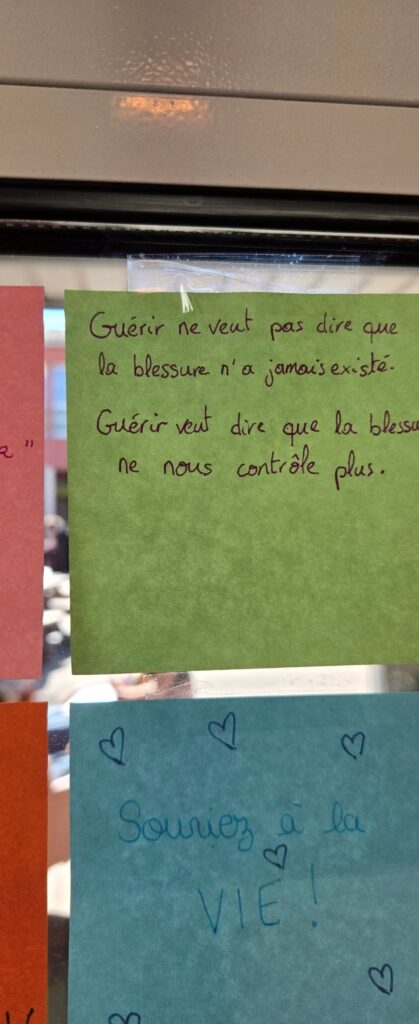 Guérir ne veut pas dire que
la blessure n'a jamais existé.
Guérir veut dire que la blessu
ne nous contrôle plus.
Souriez à la
VIE !